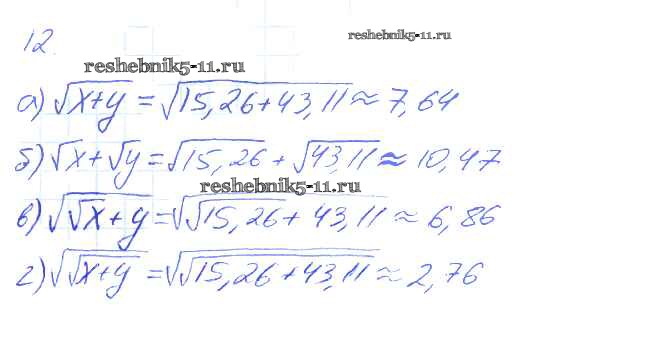 12.
reshebnik5-11.ru
reshebnik5-11.ru
а) √x+y = √15,26+43,11 ≈ 7,64
б) √x + √y = √15,26 + √43,11 ≈ 10,47
reshebnik5-11.ru
в) √√x + y = √√15,26 + 43,11 ≈ 6,86
г) √√x+y = √√15,26+43,11 ≈ 2,76